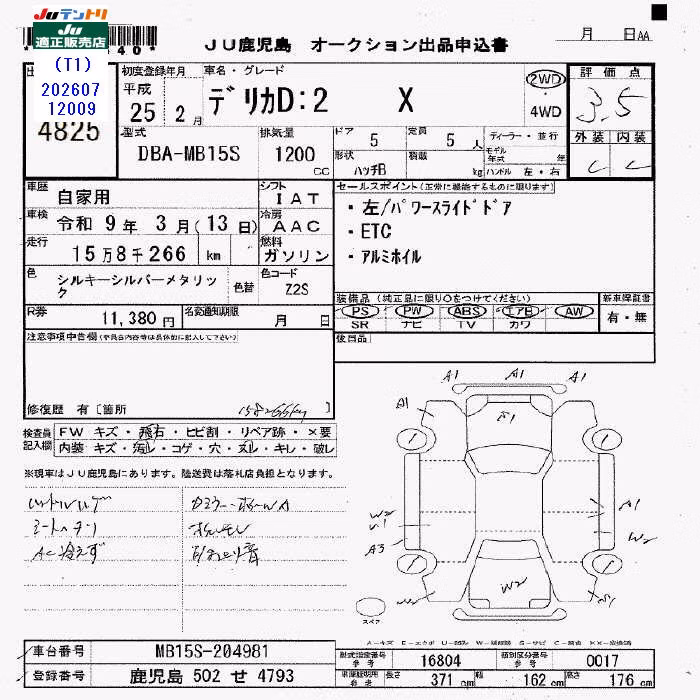 JUテントリ
JU
適正販売店
(T1)
202607
12009
4825
JU鹿児島 オークション出品申込書
月 日 AA
初度登録年月
平成
25年 2月
車名・グレード
デリカD:2 X
2WD
・
4WD
評価点
3.5
外装 内装
C C
型式
DBA-MB15S
排気量
1200
CC
ドア 5
定員 5 人
形状 ハッチB
積載 kg
ディーラー・並行
モデル年式 年
ハンドル 左・右
車歴 自家用
シフト IAT
車検 令和 9年 3月(13日)
冷房 AAC
走行 15万8千266 km
燃料 ガソリン
色 シルキーシルバーメタリック
色替
色コード Z2S
R券 11,380円
名変通知期限 月 日
セールスポイント(正常に機能するものに限ります)
・左/パワースライドドア
・ETC
・アルミホイル
装備品(純正品に限り○をつけてください)
新車保証書
PS PW ABS エアB AW
SR ナビ TV カワ
有・無
後日品
注意事項申告欄
修復歴 有〔箇所 〕
158266km
検査員記入欄
FW キズ・飛石・ヒビ割・リペア跡・×要
内装 キズ・汚レ・コゲ・穴・ヌレ・キレ・破レ
※現車はJU鹿児島にあります。陸送費は落札店負担となります。
AC冷えず
A1 A1 A1
A1
E1
W2
A1
A3
W2
W2
スペア
車台番号 MB15S-204981
登録番号 鹿児島 502 せ 4793
型式指定番号 参考 16804
類別区分番号 参考 0017
車庫証明用 参考
長さ 371 cm 幅 162 cm 高さ 176 cm